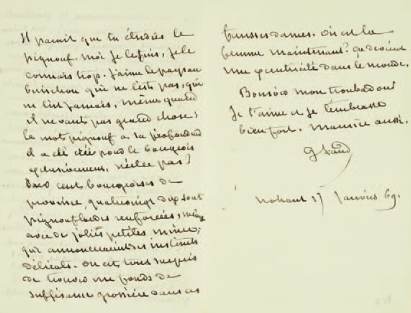 Il paraît que tu étudies le
pignouf, moi je le fuis, je le
connais trop. J'aime le paysan
berrichon qui ne l'est pas, qui
ne l'est jamais, même quand
il ne vaut pas grand chose :
le mot pignouf a sa profondeur
il a été créé pour le bourgeois
exclusivement, n'est-ce pas ?
Sur cent bourgeoises de
province, quatre-vingt dix sont
pignouflardes renforcées, même
avec de jolies petites mines,
qui annonceraient des instincts
délicats. On est tout surpris
de trouver un fonds de
suffisance grossière dans ces
fausses dames. Où est la
femme maintenant ? ça devient
une excentricité dans le monde.
Bonsoir mon troubadour
Je t'aime et je t'embrasse
bien fort. Maurice aussi.
G Sand
Nohant 17 Janvier 69.